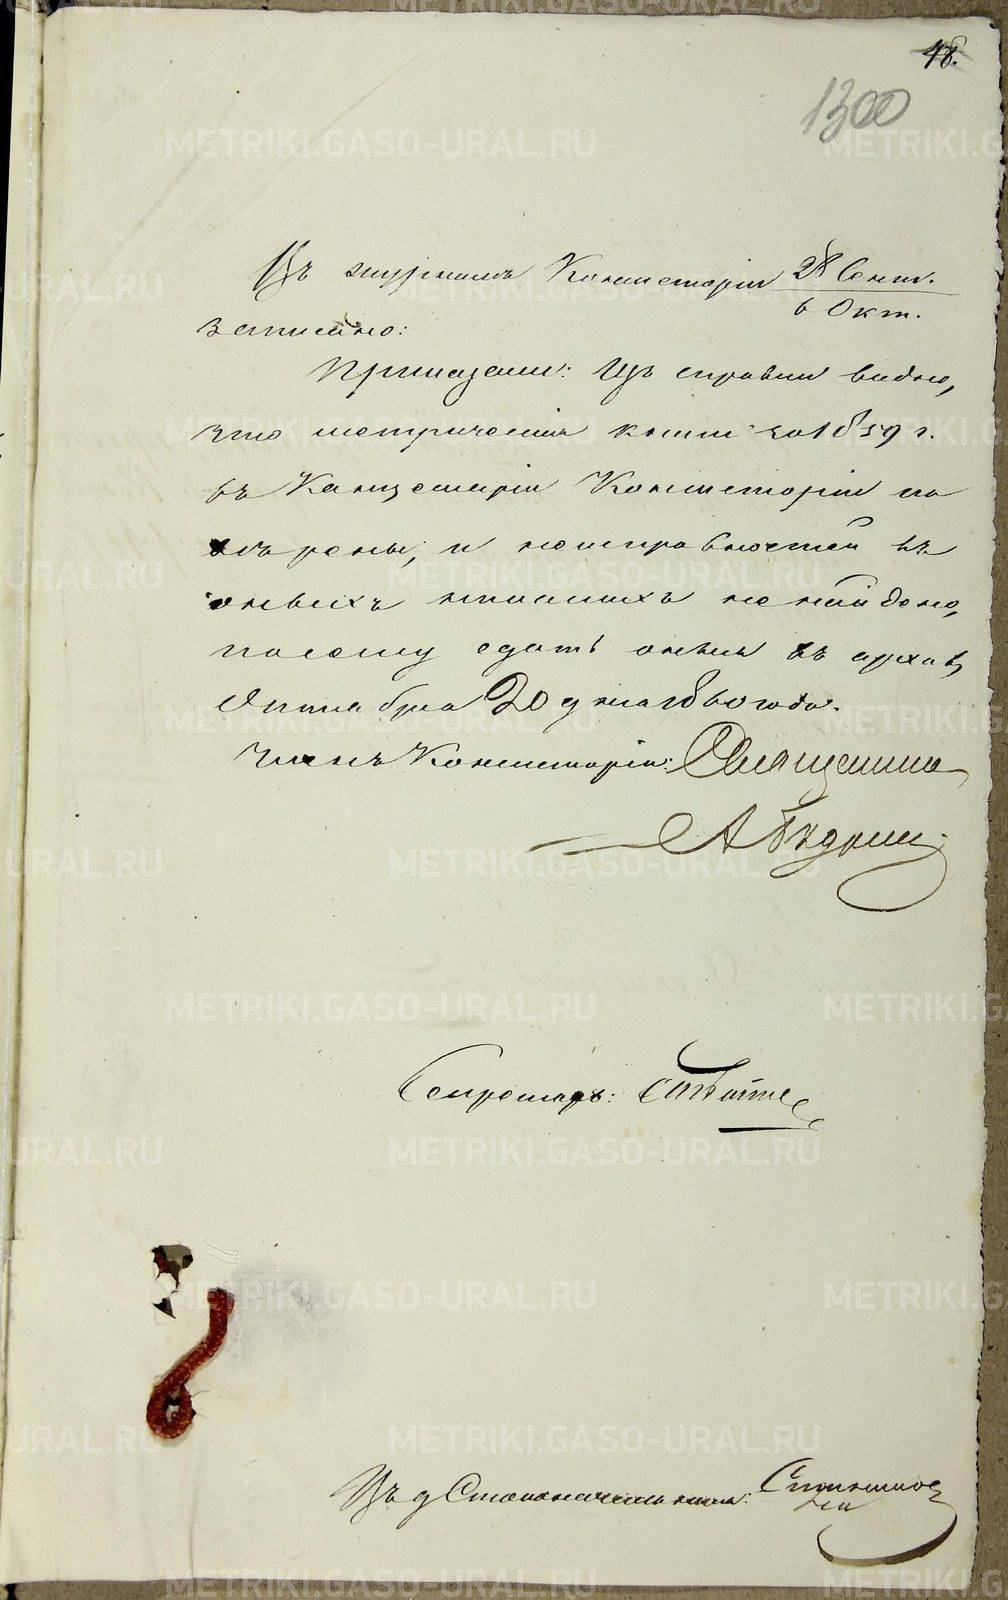 48.
1300
Въ журналѣ Консисторіи 28 Сент.
6 Окт.
записано:
Приказали: Изъ справки видно,
что метрическія книги за 1859 г.
въ Канцеляріи Консисторіи по
вѣрены, и неисправностей въ
оныхъ никакихъ не найдено,
посему сдать оныя въ архивъ,
Октября 20 дня 1860 года.
Членъ Консисторіи: Священникъ
А
Секретарь:
Столоначальника:
METRIKI.GASO-URAL.RU